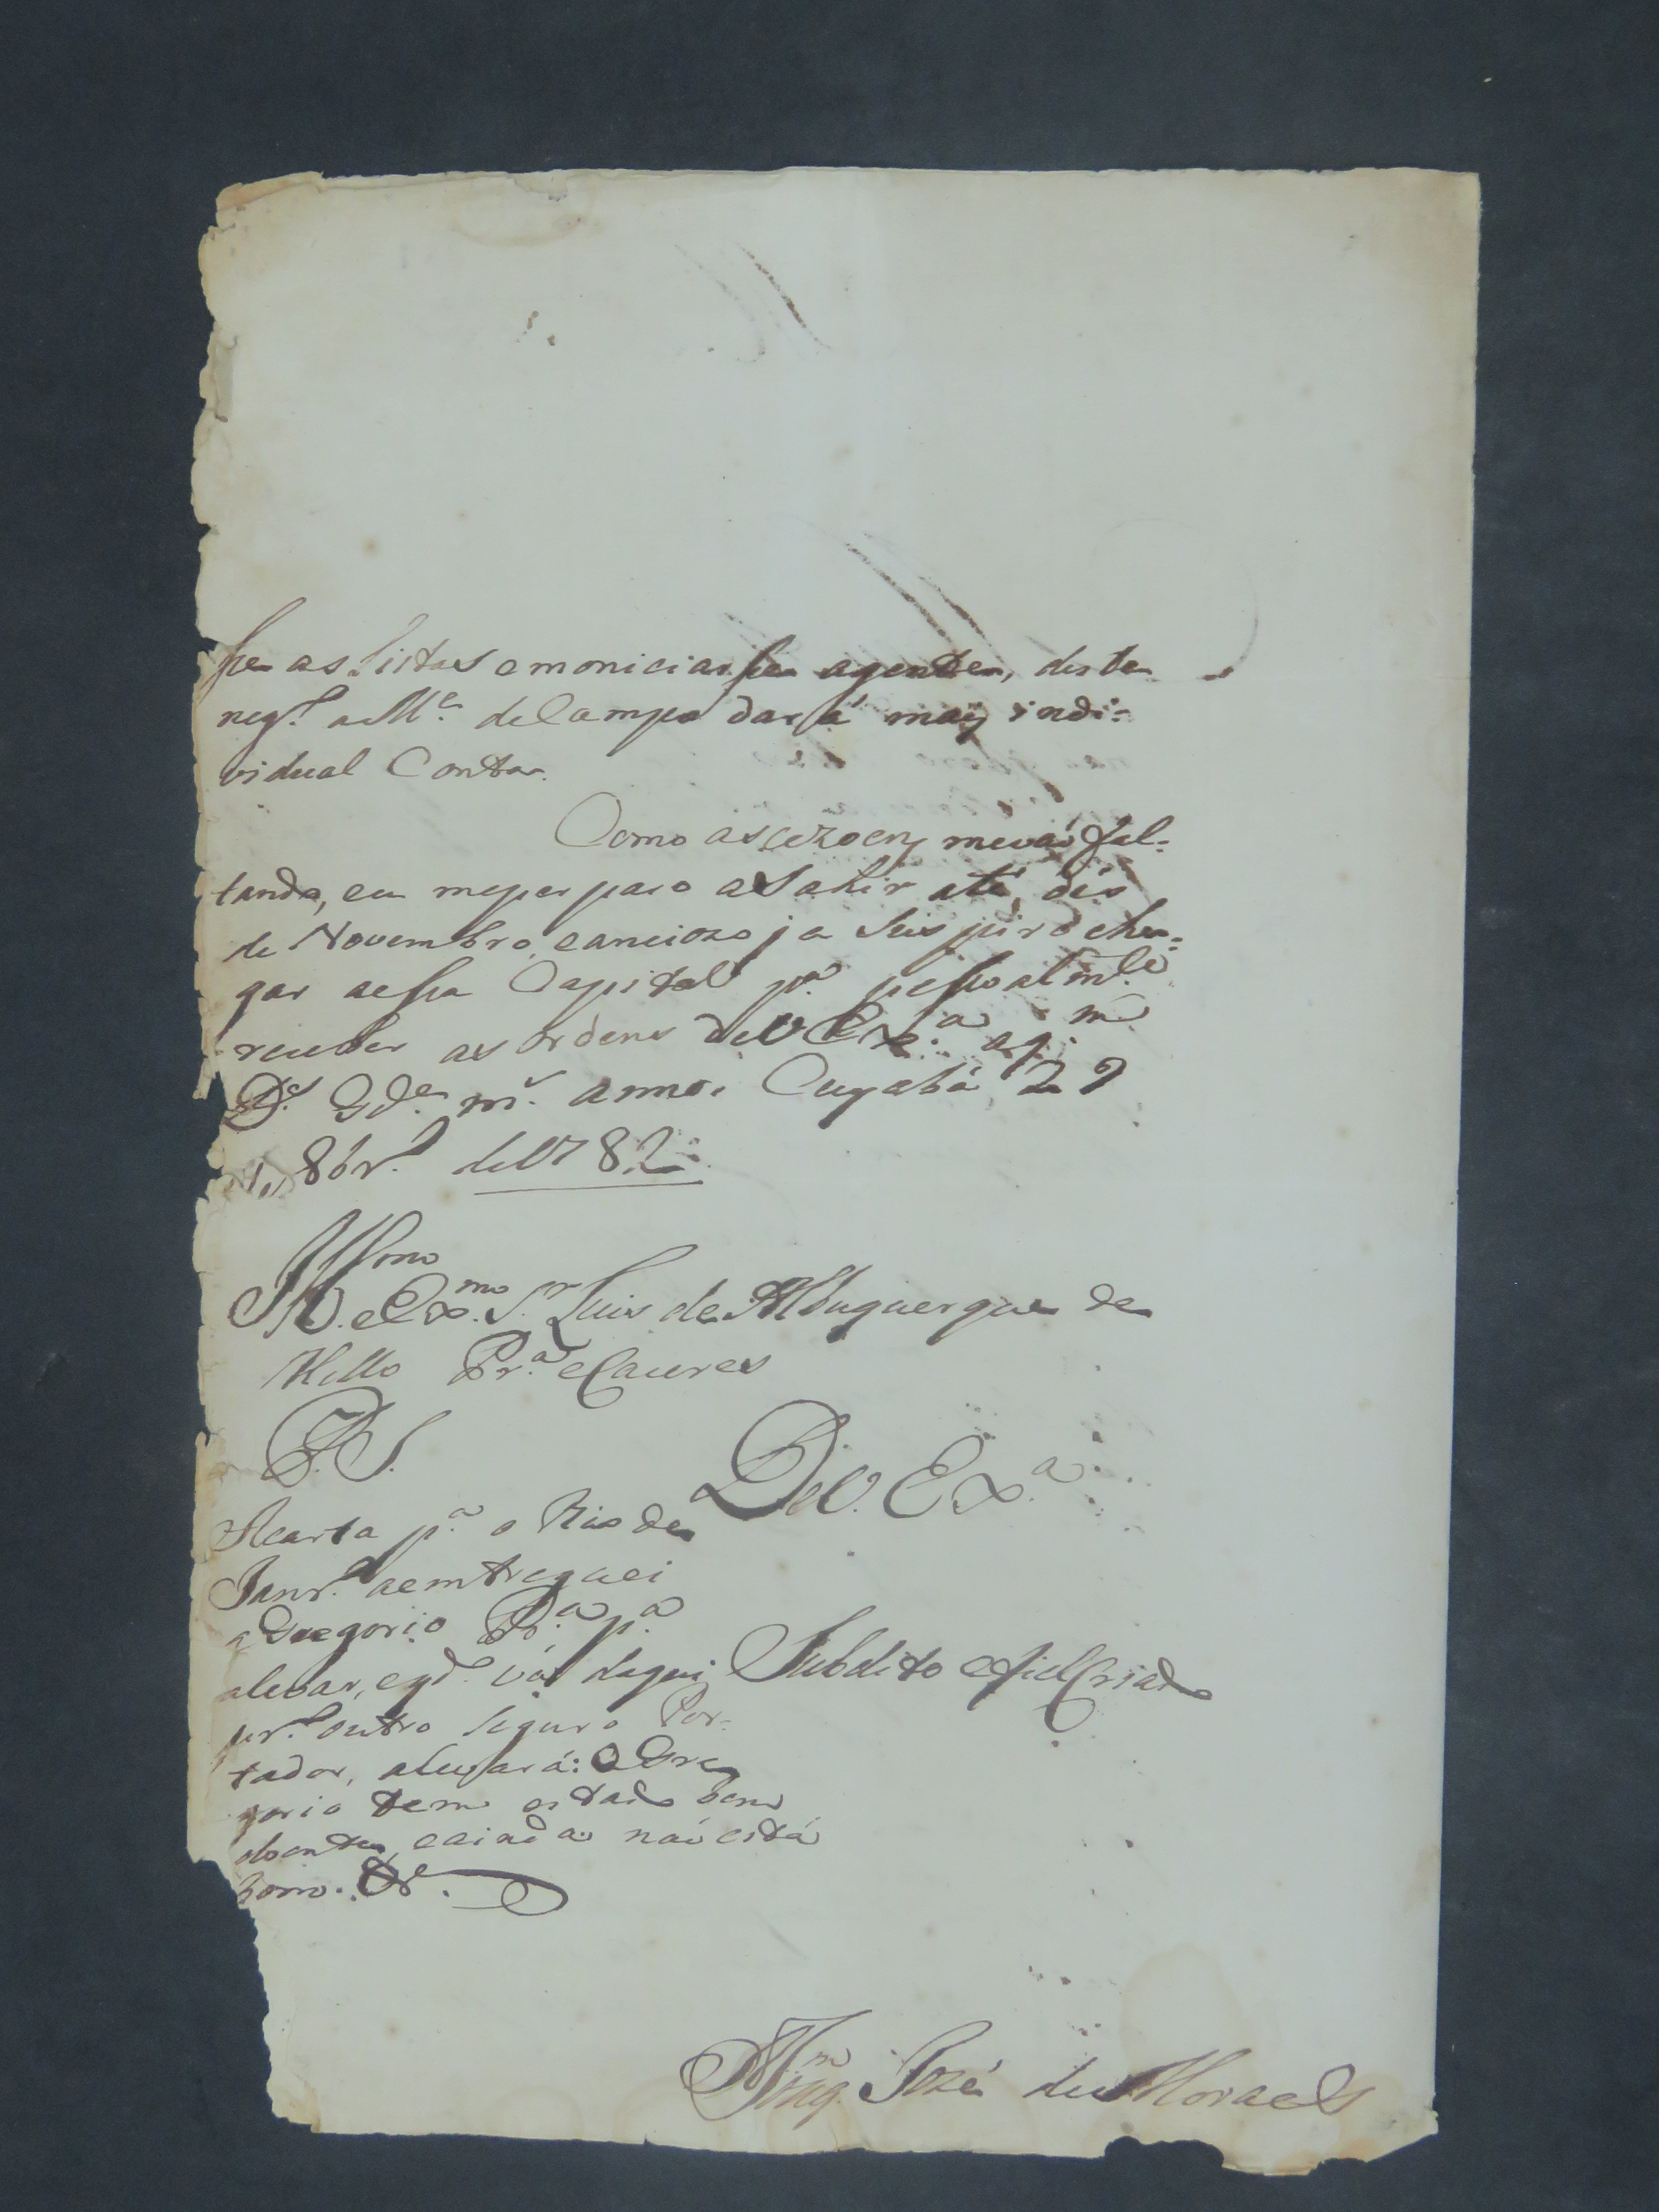 se as listas e moniciarse agente, deste
neg.º o M.e de Campo dará maiz indi-
vidual Conta.
Como as cezoenz me vaó fal-
tando, eu me preparo a Sahir até dés
de Novembro, e anciozo ja Suspiro che-
gar a essa Capital p.a pessoalm.te
receber as ordens de V Ex.a a q.m
D.s G.de m.s annos Cuyabá 29
de 8br.º de 1782
Ill.mo
e Ex.mo S.r Luis de Albuquerque de
Mello Pr.a e Caceres
P.S.
De V. Ex.a
A carta p.a o Rio de
Janr.º a entreguei
a Gregorio P.a p.a
a levar, e q.do vá daqui
pr.º outro Seguro Por-
tador, a levará: O Gre
gorio tem estado bem
doente, e ainda naó está
bom. &.e
Subdito e fiel Criado
Joaq.m José de Moraes